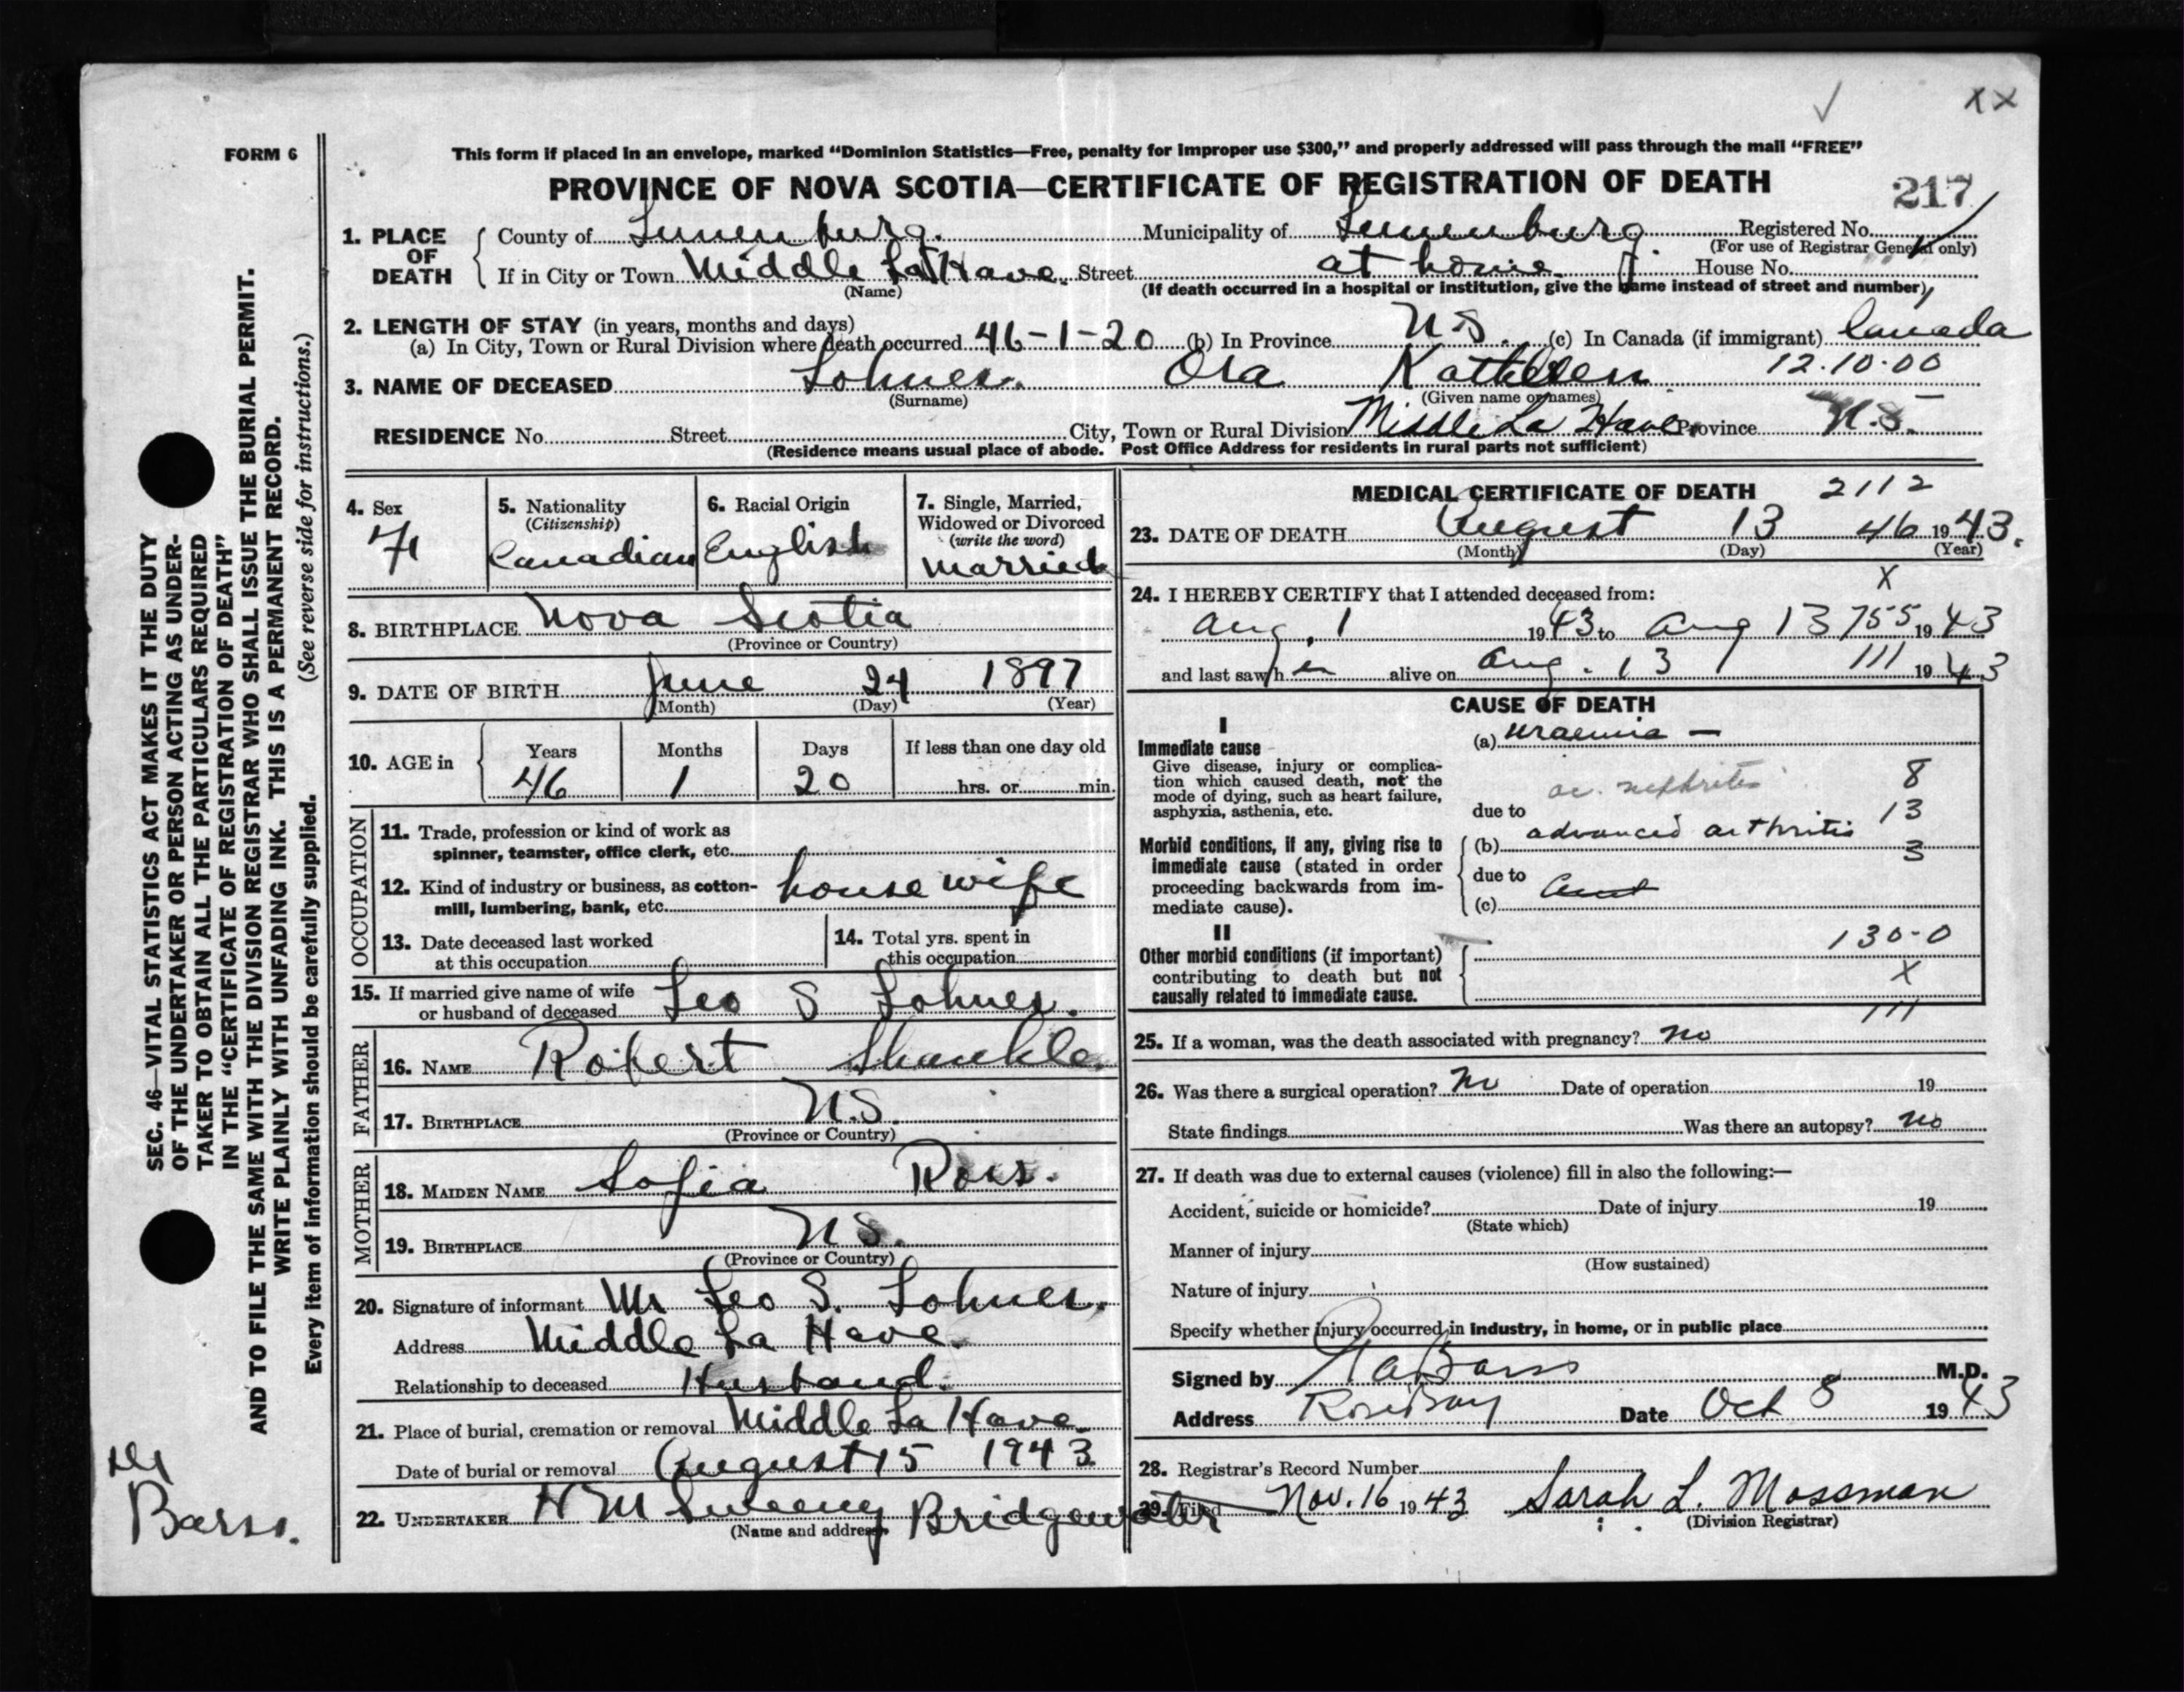 ✓ XX
FORM 6
This form if placed in an envelope, marked “Dominion Statistics—Free, penalty for improper use $300,” and properly addressed will pass through the mail “FREE”
PROVINCE OF NOVA SCOTIA—CERTIFICATE OF REGISTRATION OF DEATH 217
1. PLACE OF DEATH County of Lunenburg. Municipality of Lunenburg Registered No.
(For use of Registrar General only)
If in City or Town Middle LaHave. Street at home. House No.
(Name) (If death occurred in a hospital or institution, give the name instead of street and number)
2. LENGTH OF STAY (in years, months and days)
(a) In City, Town or Rural Division where death occurred 46-1-20 (b) In Province N.S. (c) In Canada (if immigrant) Canada
12.10.00
3. NAME OF DECEASED Lohnes. Ora Kathleen
(Surname) (Given name or names)
RESIDENCE No. Street City, Town or Rural Division Middle La Have Province N.S.
(Residence means usual place of abode. Post Office Address for residents in rural parts not sufficient)
4. Sex 5. Nationality 6. Racial Origin 7. Single, Married,
(Citizenship) Widowed or Divorced
(write the word)
F Canadian English married
8. BIRTHPLACE Nova Scotia
(Province or Country)
9. DATE OF BIRTH June 24 1897
(Month) (Day) (Year)
10. AGE in Years Months Days If less than one day old
46 1 20 hrs. or min.
OCCUPATION
11. Trade, profession or kind of work as
spinner, teamster, office clerk, etc.
12. Kind of industry or business, as cotton-
mill, lumbering, bank, etc. housewife
13. Date deceased last worked
at this occupation
14. Total yrs. spent in
this occupation
15. If married give name of wife
or husband of deceased Leo S Lohnes.
FATHER
16. NAME Robert Shankle
17. BIRTHPLACE N.S.
(Province or Country)
MOTHER
18. MAIDEN NAME Sofia Ross.
19. BIRTHPLACE N.S.
(Province or Country)
20. Signature of informant Mr Leo S. Lohnes.
Address Middle La Have.
Relationship to deceased Husband.
21. Place of burial, cremation or removal Middle La Have
Date of burial or removal August 15 1943
22. UNDERTAKER H M Sweeny Bridgewater
(Name and address)
MEDICAL CERTIFICATE OF DEATH 2112
23. DATE OF DEATH August 13 46 1943.
(Month) (Day) (Year)
X
24. I HEREBY CERTIFY that I attended deceased from:
Aug. 1 1943 to Aug 13 755 1943
and last saw h er alive on Aug. 13 111 1943
CAUSE OF DEATH
I
Immediate cause
Give disease, injury or complica-
tion which caused death, not the
mode of dying, such as heart failure,
asphyxia, asthenia, etc.
(a) uraemia —
ac. nephritis 8
due to 13
Morbid conditions, if any, giving rise to
immediate cause (stated in order
proceeding backwards from im-
mediate cause).
(b) advanced arthritis 3
due to
(c)
II
Other morbid conditions (if important)
contributing to death but not
causally related to immediate cause.
130-0
X
111
25. If a woman, was the death associated with pregnancy? no
26. Was there a surgical operation? no Date of operation 19
State findings Was there an autopsy? no
27. If death was due to external causes (violence) fill in also the following:—
Accident, suicide or homicide? Date of injury 19
(State which)
Manner of injury
(How sustained)
Nature of injury
Specify whether injury occurred in industry, in home, or in public place
Signed by Barss M.D.
Address Rose Bay Date Oct 8 1943
28. Registrar's Record Number
29. Filed Nov. 16 1943 Sarah L. Mossman
(Division Registrar)
SEC. 46—VITAL STATISTICS ACT MAKES IT THE DUTY
OF THE UNDERTAKER OR PERSON ACTING AS UNDER-
TAKER TO OBTAIN ALL THE PARTICULARS REQUIRED
IN THE “CERTIFICATE OF REGISTRATION OF DEATH”
AND TO FILE THE SAME WITH THE DIVISION REGISTRAR WHO SHALL ISSUE THE BURIAL PERMIT.
WRITE PLAINLY WITH UNFADING INK. THIS IS A PERMANENT RECORD.
Every item of information should be carefully supplied. (See reverse side for instructions.)
Dr
Barss.